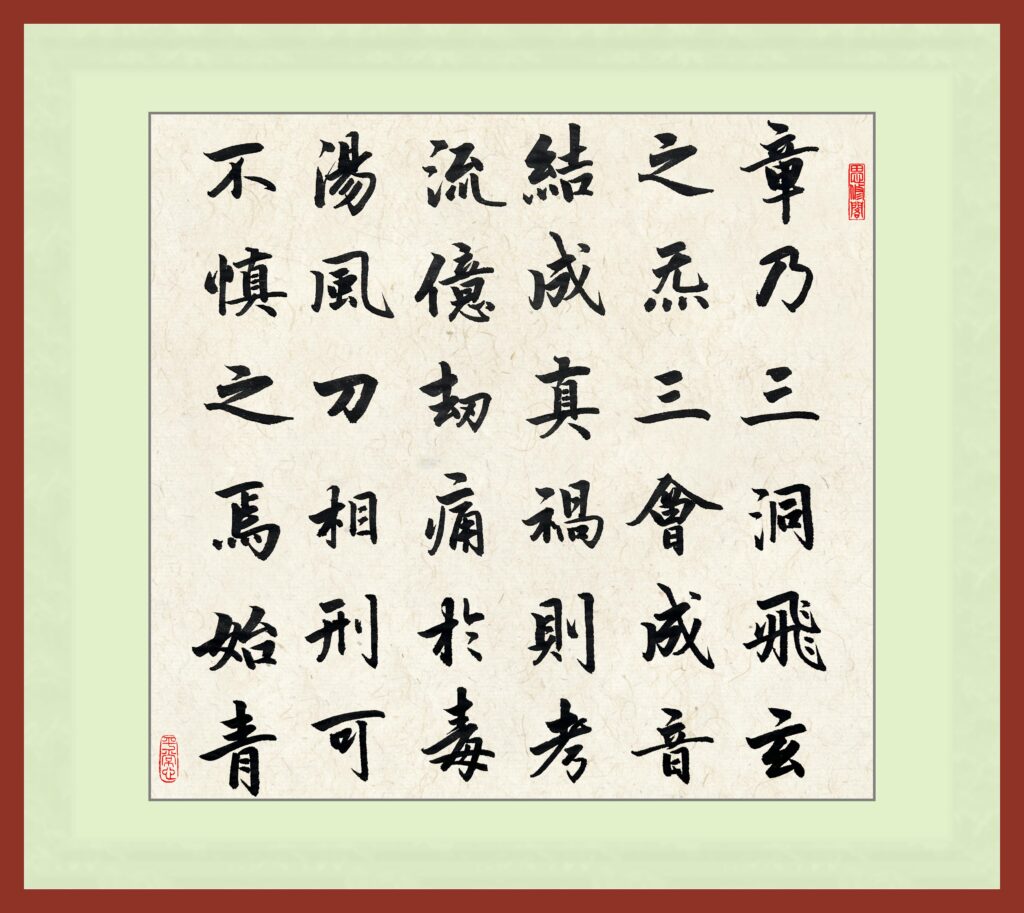 章乃三洞飛玄
之炁三會成音
結成真禍則考
流億劫痛於毒
湯風刀相刑可
不慎之焉始青
思修閣
平常心